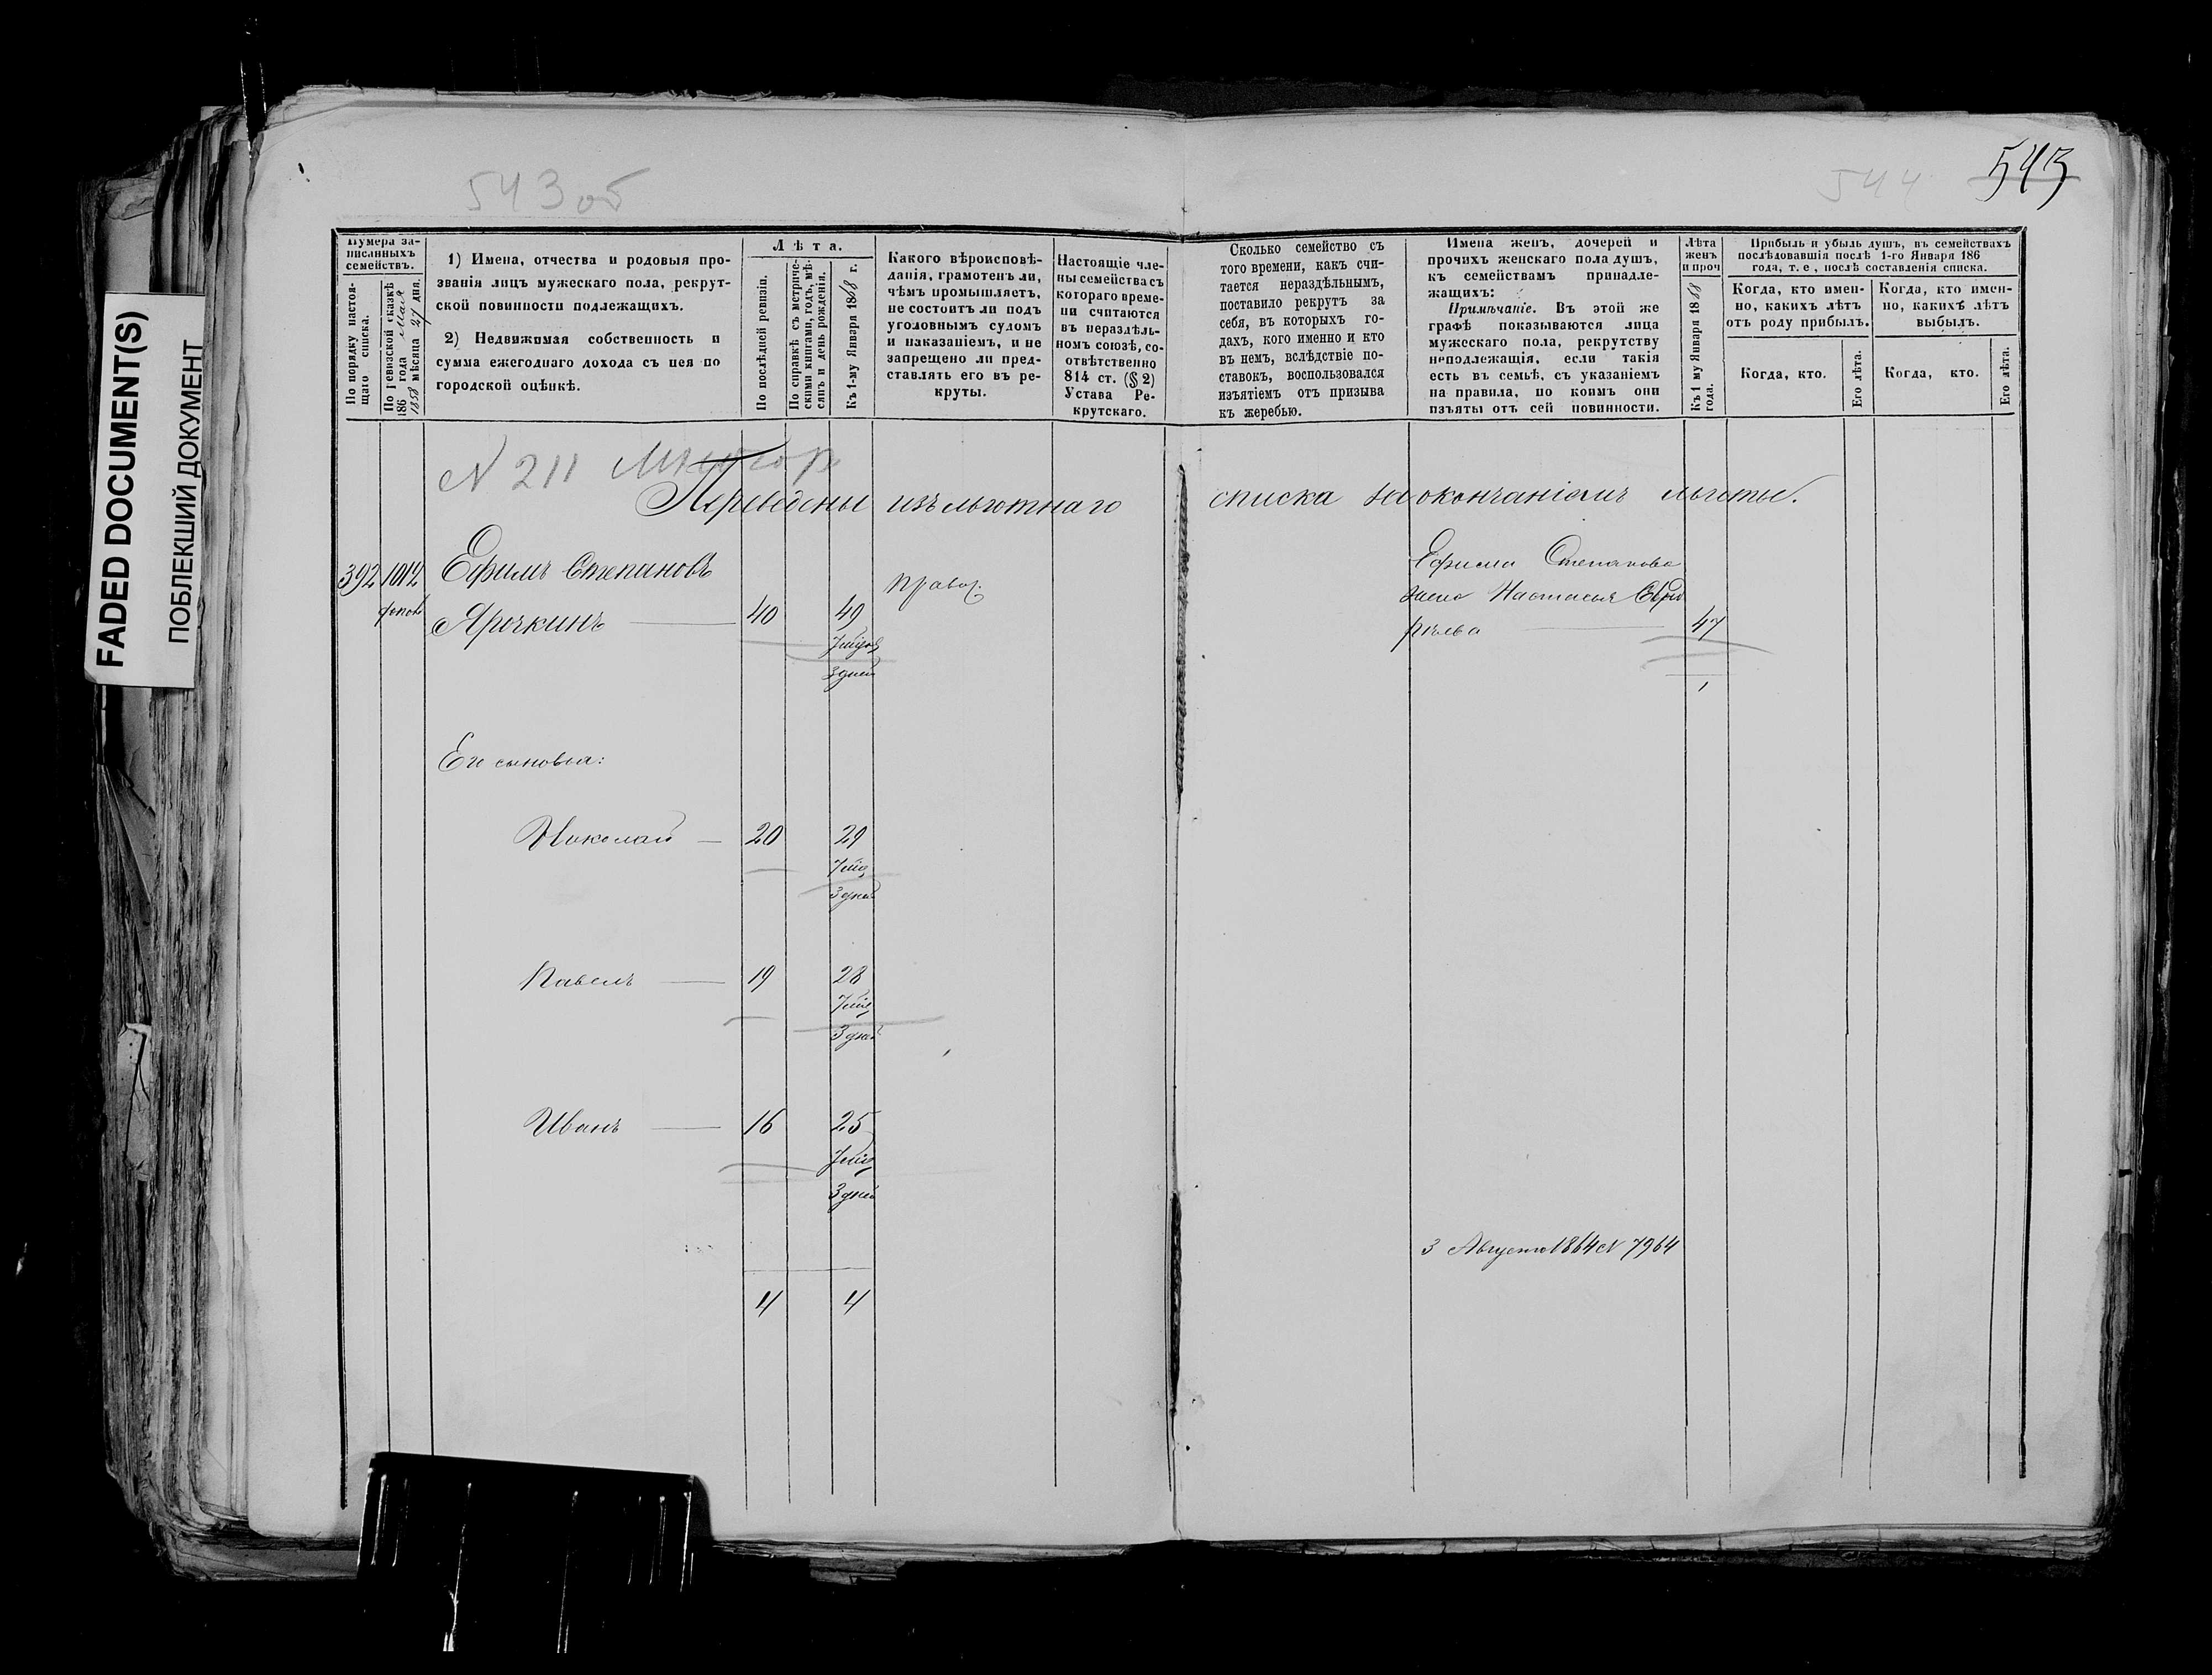 FADED DOCUMENT(S)
ПОБЛЕКШИЙ ДОКУМЕНТ
543об
544
543
Нумера за-
писанныхъ
семействъ.
По порядку настоя-
щаго списка.
По ревизской сказкѣ
186 года Мая
1858 мѣсяца 27 дня.
1) Имена, отчества и родовыя про-
званія лицъ мужескаго пола, рекрут-
ской повинности подлежащихъ.
2) Недвижимая собственность и
сумма ежегоднаго дохода съ нея по
городской оцѣнкѣ.
Лѣта.
По послѣдней ревизіи.
По справкѣ съ метриче-
скими книгами, годъ, мѣ-
сяцъ и день рожденія.
Къ 1-му Января 1868 г.
Какого вѣроисповѣ-
данія, грамотенъ ли,
чѣмъ промышляетъ,
не состоитъ ли подъ
уголовнымъ судомъ
и наказаніемъ, и не
запрещено ли пред-
ставлять его въ ре-
круты.
Настоящіе чле-
ны семейства съ
котораго време-
ни считаются
въ нераздѣль-
номъ союзѣ, со-
отвѣтственно
814 ст. (§ 2)
Устава Ре-
крутскаго.
Сколько семейство съ
того времени, какъ счи-
тается нераздѣльнымъ,
поставило рекрутъ за
себя, въ которыхъ го-
дахъ, кого именно и кто
въ немъ, вслѣдствіе по-
ставокъ, воспользовался
изъятіемъ отъ призыва
къ жеребью.
Имена женъ, дочерей и
прочихъ женскаго пола душъ,
къ семействамъ принадле-
жащихъ:
Примѣчаніе. Въ этой же
графѣ показываются лица
мужескаго пола, рекрутству
неподлежащія, если такія
есть въ семьѣ, съ указаніемъ
на правила, по коимъ они
изъяты отъ сей повинности.
Лѣта
женъ
и проч
Къ 1 му Января 1868
года.
Прибыль и убыль душъ, въ семействахъ
послѣдовавшія послѣ 1-го Января 186
года, т. е , послѣ составленія списка.
Когда, кто имен-
но, какихъ лѣтъ
отъ роду прибылъ.
Когда, кто имен-
но, какихъ лѣтъ
выбылъ.
Когда, кто.
Его лѣта.
Когда, кто.
Его лѣта.
N 211
Переведены изъ льготнаго списка за окончаніемъ льготы.
392 1012 Ефимъ Степановъ
Ярочкинъ 40 49
3 дней
Правос.
Ефима Степанова
жена Настасья
47
1
Его сыновья:
Николай 20 29
3 дней
Павелъ 19 28
3 дней
Иванъ 16 25
3 дней
3 Августа 1864 N 7964
4 4